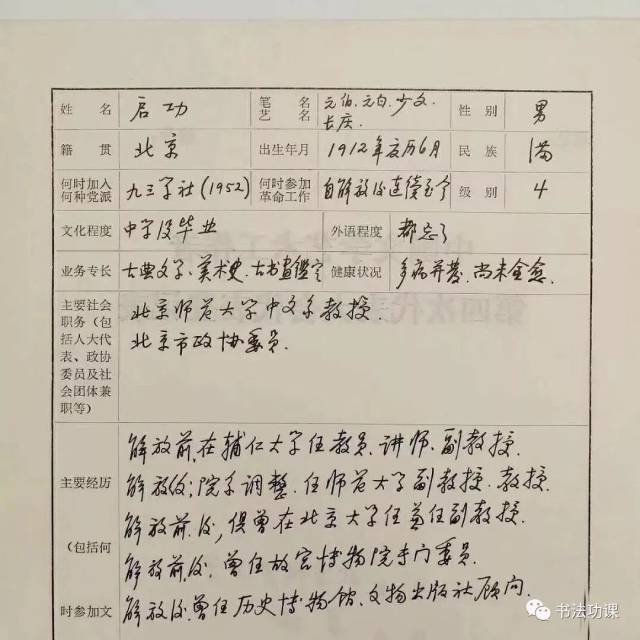 姓 名 启功 笔 名 艺 名 元伯.元白.少文.长庆. 性 别 男
籍 贯 北京 出生年月 1912年夏历6月 民 族 满
何时加入何种党派 九三学社(1952) 何时参加革命工作 自解放后连续至今 级 别 4
文化程度 中学没毕业 外语程度 都忘了
业务专长 古典文学.美术史.古书画鉴定 健康状况 多病并发.尚未全愈.
主要社会
职务(包
括人大代
表、政协
委员及社
会团体兼
职等)
北京师范大学中文系教授.
北京市政协委员.
主要经历
(包括何
时参加文
解放前在辅仁大学任教员.讲师.副教授.
解放后;院系调整.任师范大学副教授.教授.
解放前.后,俱曾在北京大学任兼任副教授.
解放前.后.曾任故宫博物院专门委员.
解放后.曾任历史博物馆.文物出版社顾问.
书法功课